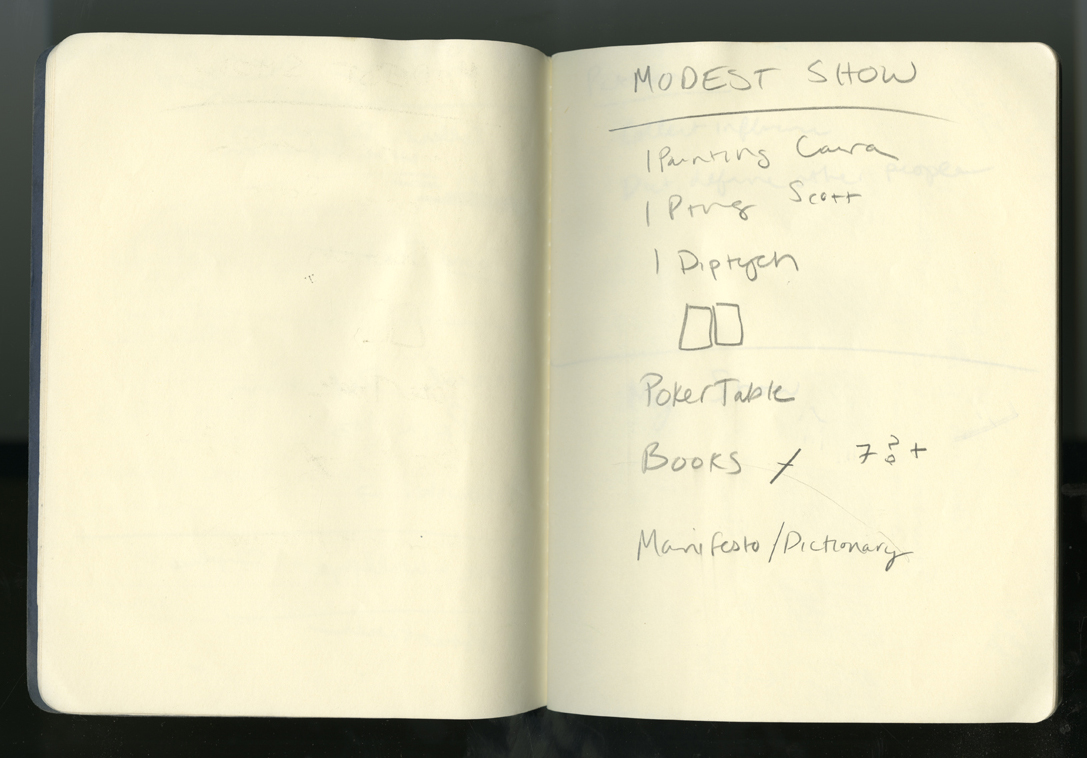 MODEST SHOW
1 Painting Caura
1 Ptng Scott
1 Diptych
Poker Table
Books / 7 ? +
Manifesto/Dictionary